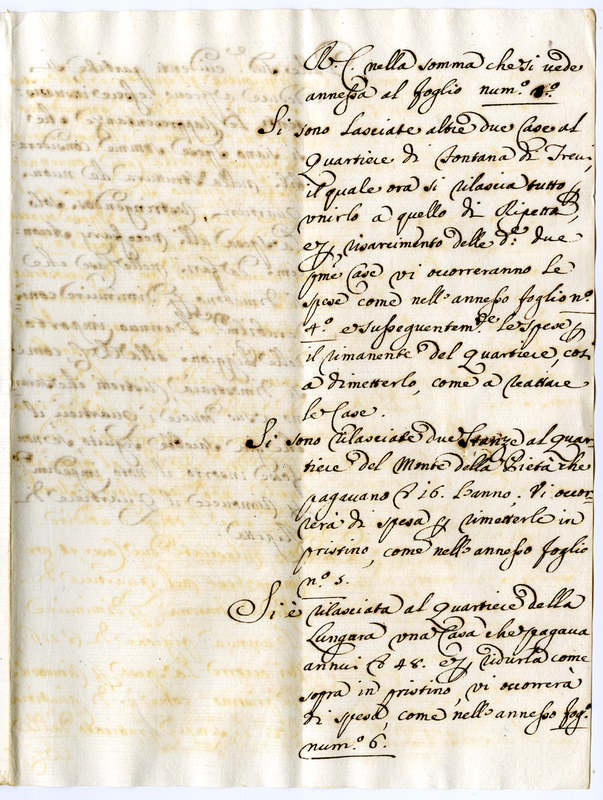 R. C. nella somma che si vede
annessa al foglio num.º
Si sono lasciate altre due Case al
Quartiere di Fontana di Trevi,
il quale ora si rilascia tutto p
unirlo a quello di Ripetta,
e p risarcimento delle d.e due
pme Case vi occorreranno le
spese come nell'annesso foglio n.º
4.º e susseguentem.te le spese p
il rimanente del Quartiere, così
a dimetterlo, come a reattare
le Case.
Si sono rilasciate due Stanze al Quar-
tiere del Monte della Pietà che
pagavano 16. l'anno, Vi occor-
rerà di spesa p rimetterle in
pristino, come nell'annesso foglio
n.º 5.
Si è rilasciata al Quartiere della
Lungara una Casa che pagava
annui 48. e p ridurla come
sopra in pristino, vi occorrerà
di spesa, come nell'annesso fog.º
num.º 6.